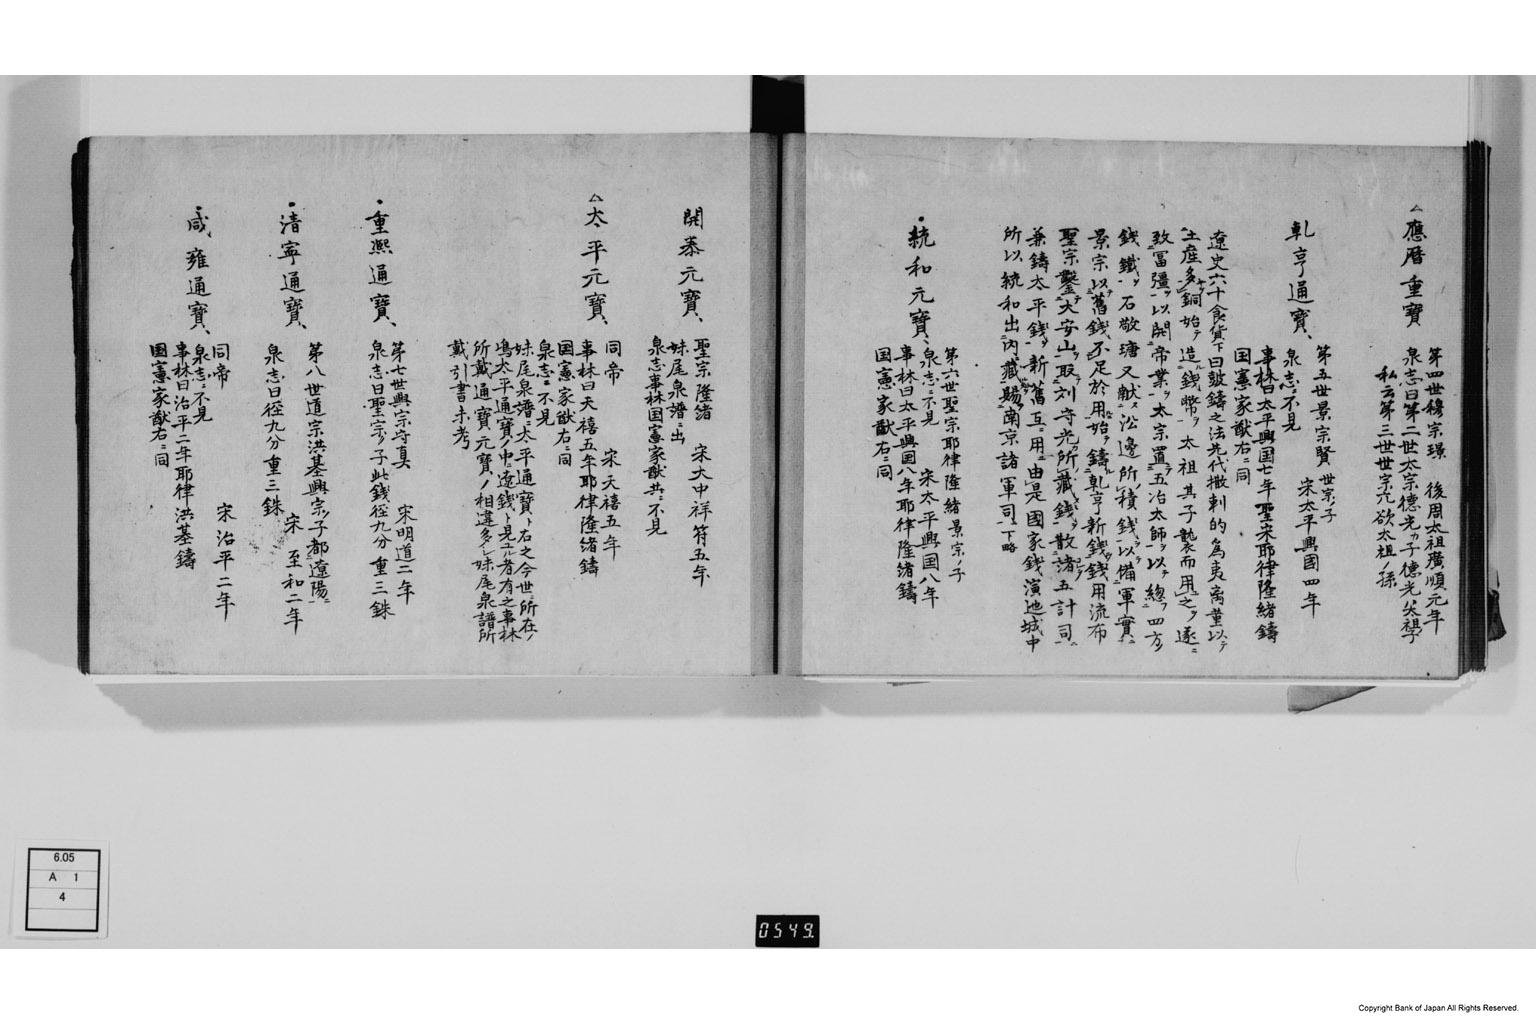 △應暦重寶
第四世穆宗璟　後周太祖廣順元年
泉志曰第二世太宗德光カ子德光
私云第三世世宗兀欲太祖ノ孫
乹亨通寶、
第五世景宗賢 世宗ノ子　宋太平興國四年
泉志ニ不見
事林曰太平興国七年聖宋耶律隆緒鑄
国憲家猷右ニ同
遼史六十食貨下曰皷鑄之法先代撒剌的為夷离菫以テ
土産多銅始テ造ル錢幣ヲ太祖其子襲而用之ヲ遂ニ
致冨彊ヲ以開帝業ヲ太宗置五冶太師ヲ以テ總フ四方ノ
錢鐵ヲ石敬瑭又献ス沿邊所ノ積錢ヲ以備軍實ニ
景宗以舊錢ノ不足於用ニ始テ鑄乹亨新錢ヲ錢用流布
聖宗鑿大安山ヲ取刘守光所藏錢ヲ散諸五計司ニ
兼鑄太平錢ヲ新舊互ニ用ニ由是國家錢演迤域中
所以統和出内藏賜南京諸軍司ニ下略
・統和元寶、
第六世聖宗耶律隆緒 景宗ノ子
泉志ニ不見　宋太平興国八年
事林曰太平興国八年耶律隆緒鑄
国憲家猷右ニ同
開泰元寶、
聖宗隆緒　宋大中祥符五年
妹尾泉譜ニ出
泉志事林国憲家猷共ニ不見
△太平元寶、
同帝　宋天禧五年
事林曰天禧五年耶律隆緒鑄
国憲家猷右ニ同
泉志ニ不見
妹尾泉譜ニ太平通寶ト右之今世ニ所在ノ
太平通寶ノ中ニ遼錢ト見ユル者有之事林
所戴通寶元寶ノ相違多シ妹尾泉譜所
戴引書未考
・重熙通寶、
第七世興宗守真　宋明道二年
泉志曰聖宗ノ子此錢径九分重三銖
・清寧通寶、
第八世道宗洪基興宗ノ子都遼陽ニ
宋至和二年
泉志曰径九分重三銖
・咸雍通寶、
同帝　宋治平二年
泉志ニ不見
事林曰治平二年耶律洪基鑄
国憲家猷右ニ同
6.05
A 1
4
0549.
Copyright Bank of Japan All Rights Reserved.